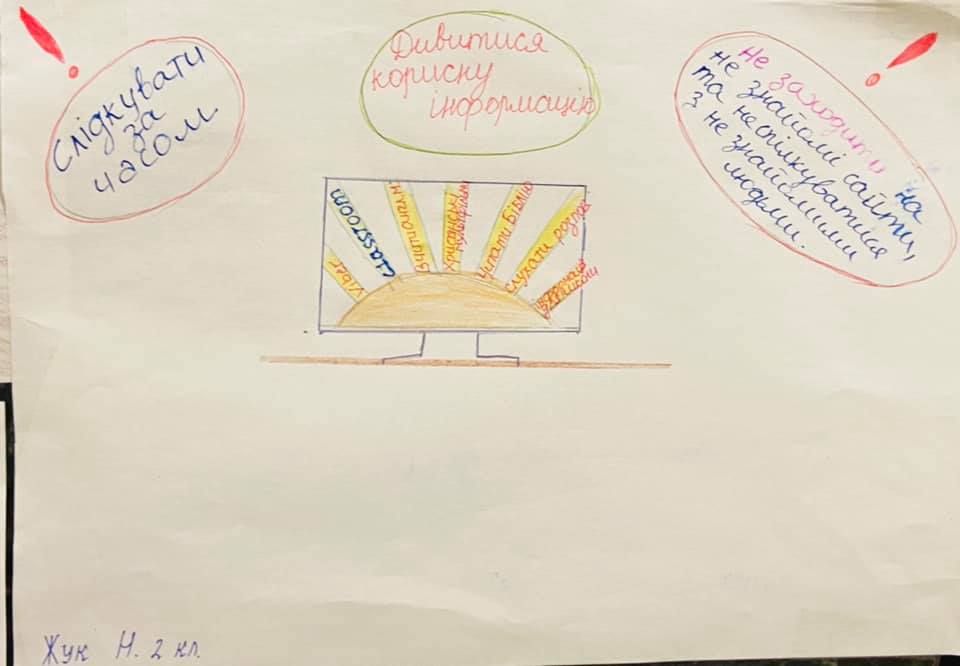 Слідкувати
за
часом
Дивитися
корисну
інформацію
не заходити на
не знайомі сайти,
та неспілкуватися
з не знайомими
людьми.
Viber
classroom
Християнські
мультфільми
Читати Біблію
слухати розпов
Жук Н. 2 кл.